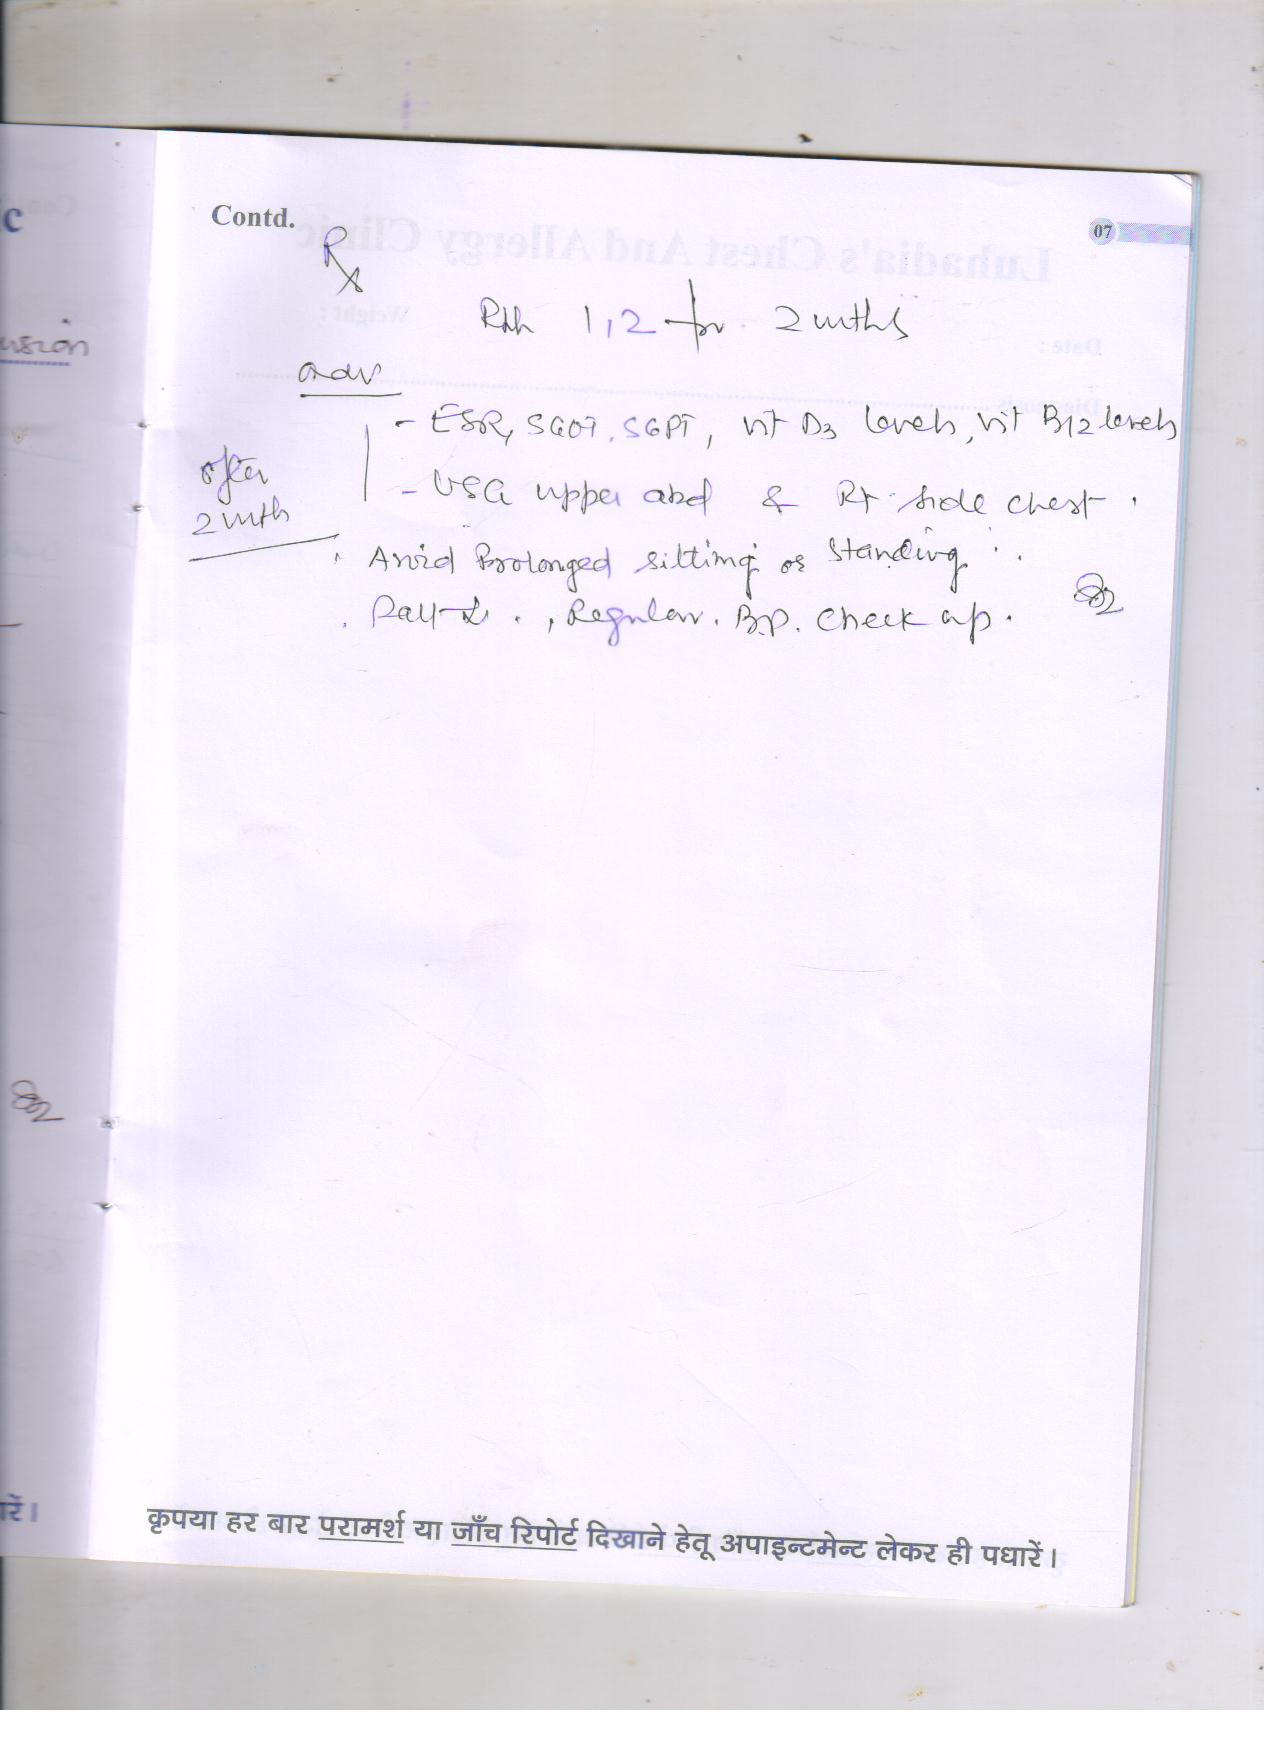 Contd.
07
Rx
Rth 1,2 for 2 mths
adv
- ESR, SGOT, SGPT, vit D3 levels, vit B12 levels
after
2 mth
- USG upper abd & Rt side chest.
. Avoid Prolonged sitting or standing
. , Regular. B.P. check up.
कृपया हर बार परामर्श या जाँच रिपोर्ट दिखाने हेतू अपाइन्टमेन्ट लेकर ही पधारें।